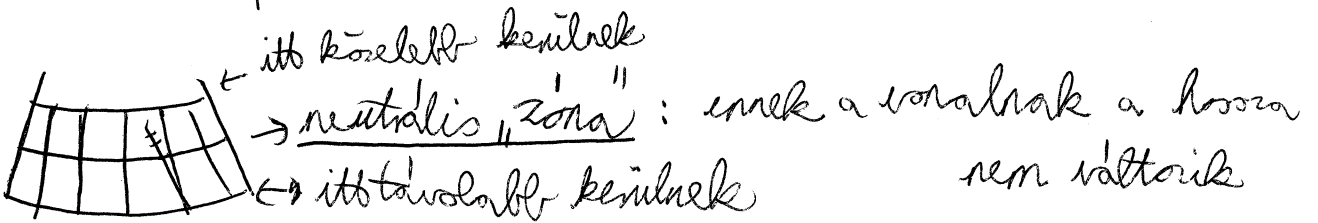 itt közelebb kerülnek
neutrális „zóna” : ennek a vonalnak a hossza
nem változik
itt távolabb kerülnek